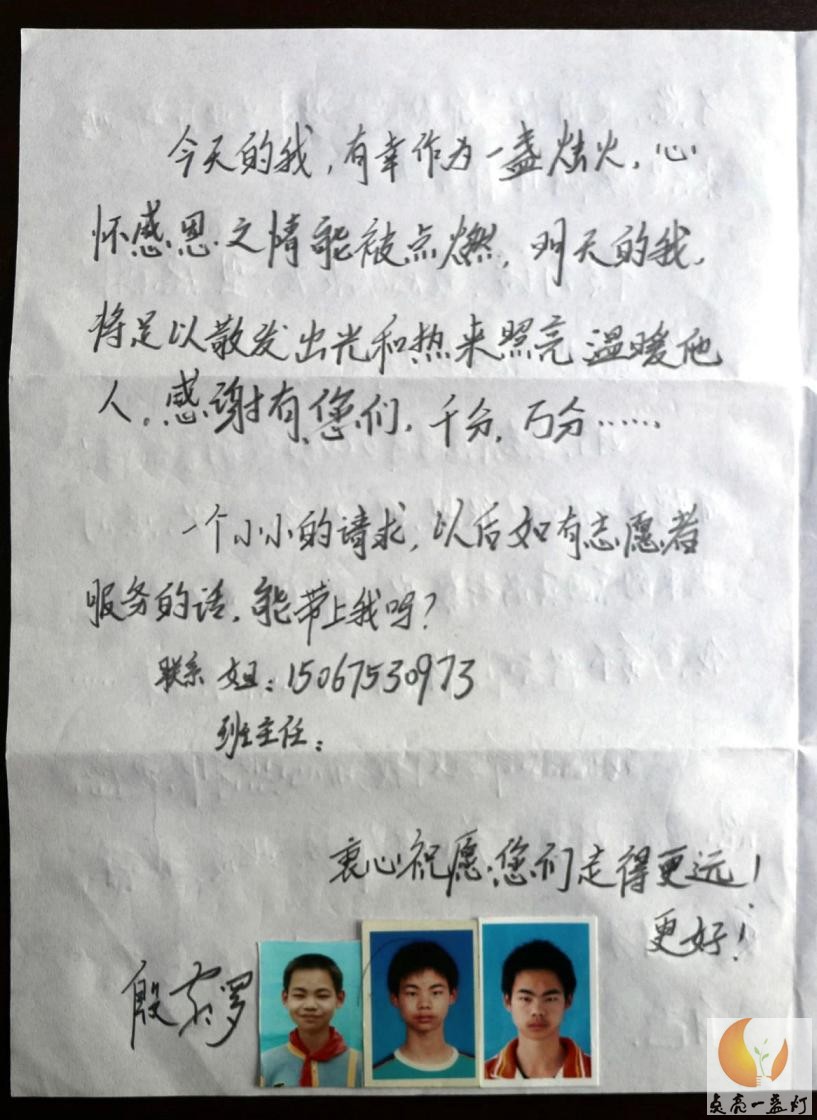 今天的我，有幸作为一盏烛火，心
怀感恩之情能被点燃，明天的我，
将足以散发出光和热来照亮温暖他
人，感谢有您们，千分，万分……
一个小小的请求，以后如有志愿者
服务的话，能带上我吗？
联系 姐：15067530973
班主任：
衷心祝愿您们走得更远！
更好！
殷
点亮一盏灯